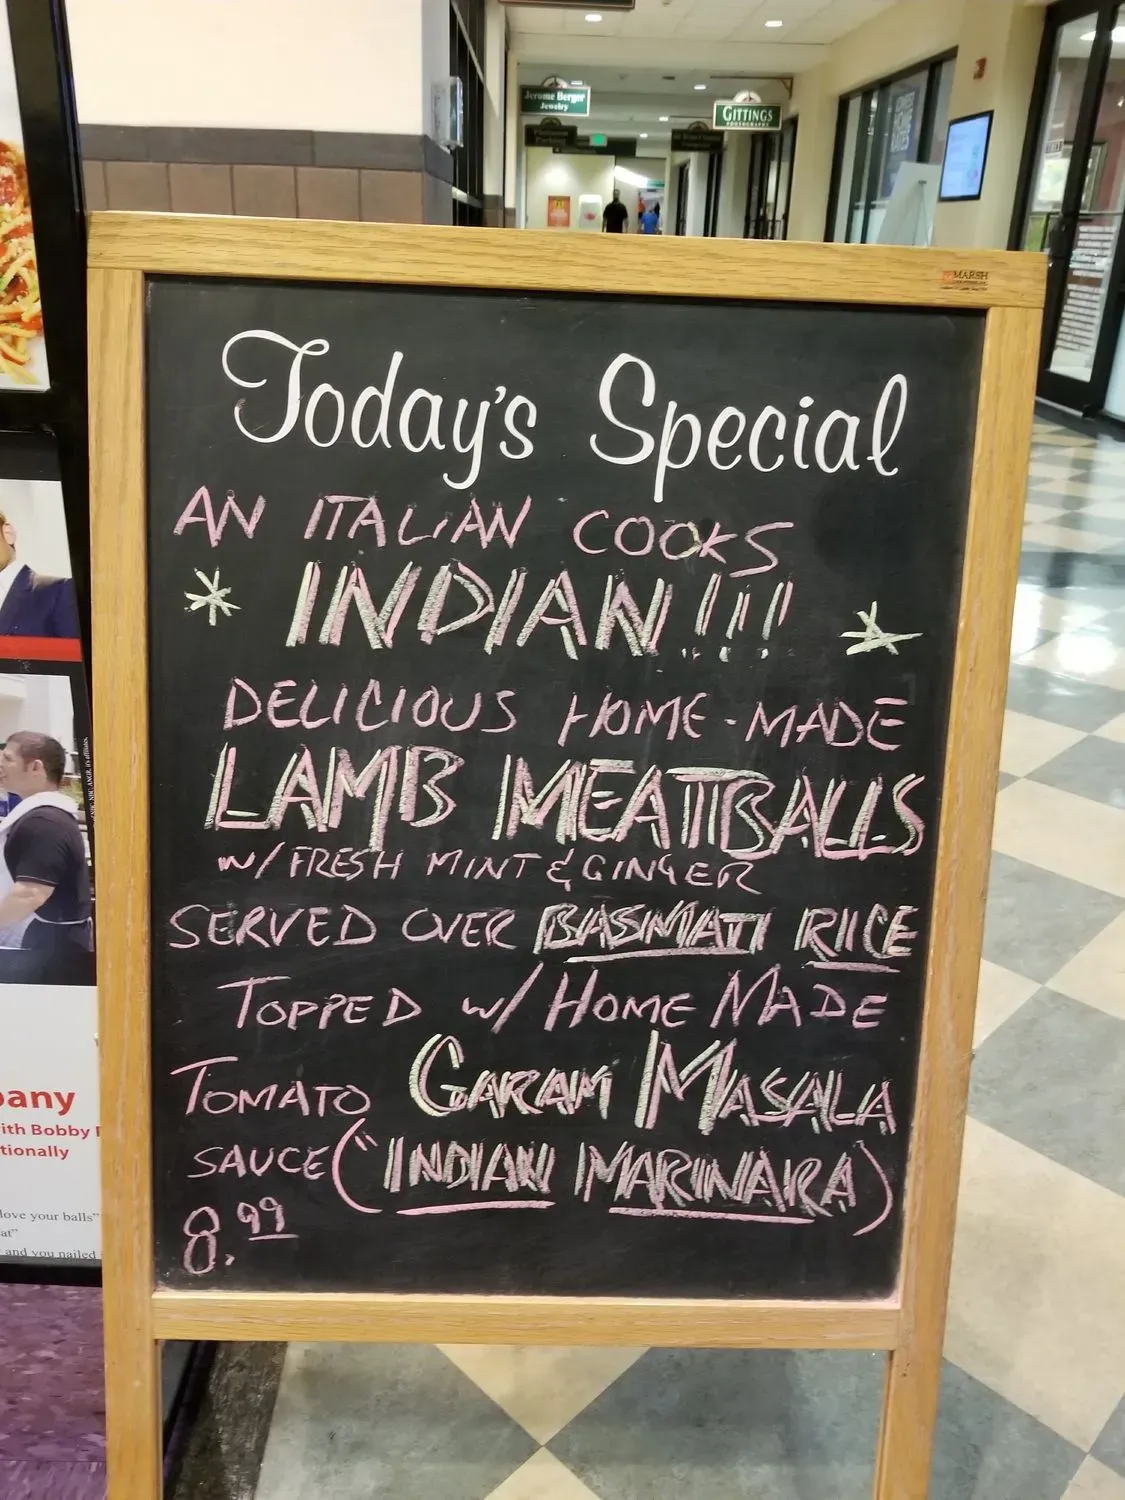 Jerome Berger
Jewelry
GITTINGS
PHOTOGRAPHY
MARSH
Today's Special
AN ITALIAN COOKS
* INDIAN!!! *
DELICIOUS HOME-MADE
LAMB MEATBALLS
W/ FRESH MINT & GINGER
SERVED OVER BASMATI RICE
TOPPED W/ HOME MADE
TOMATO GARAM MASALA
SAUCE ("INDIAN MARINARA)
8.99
pany
ith Bobby
tionally
love your balls"
at"
and you nailed